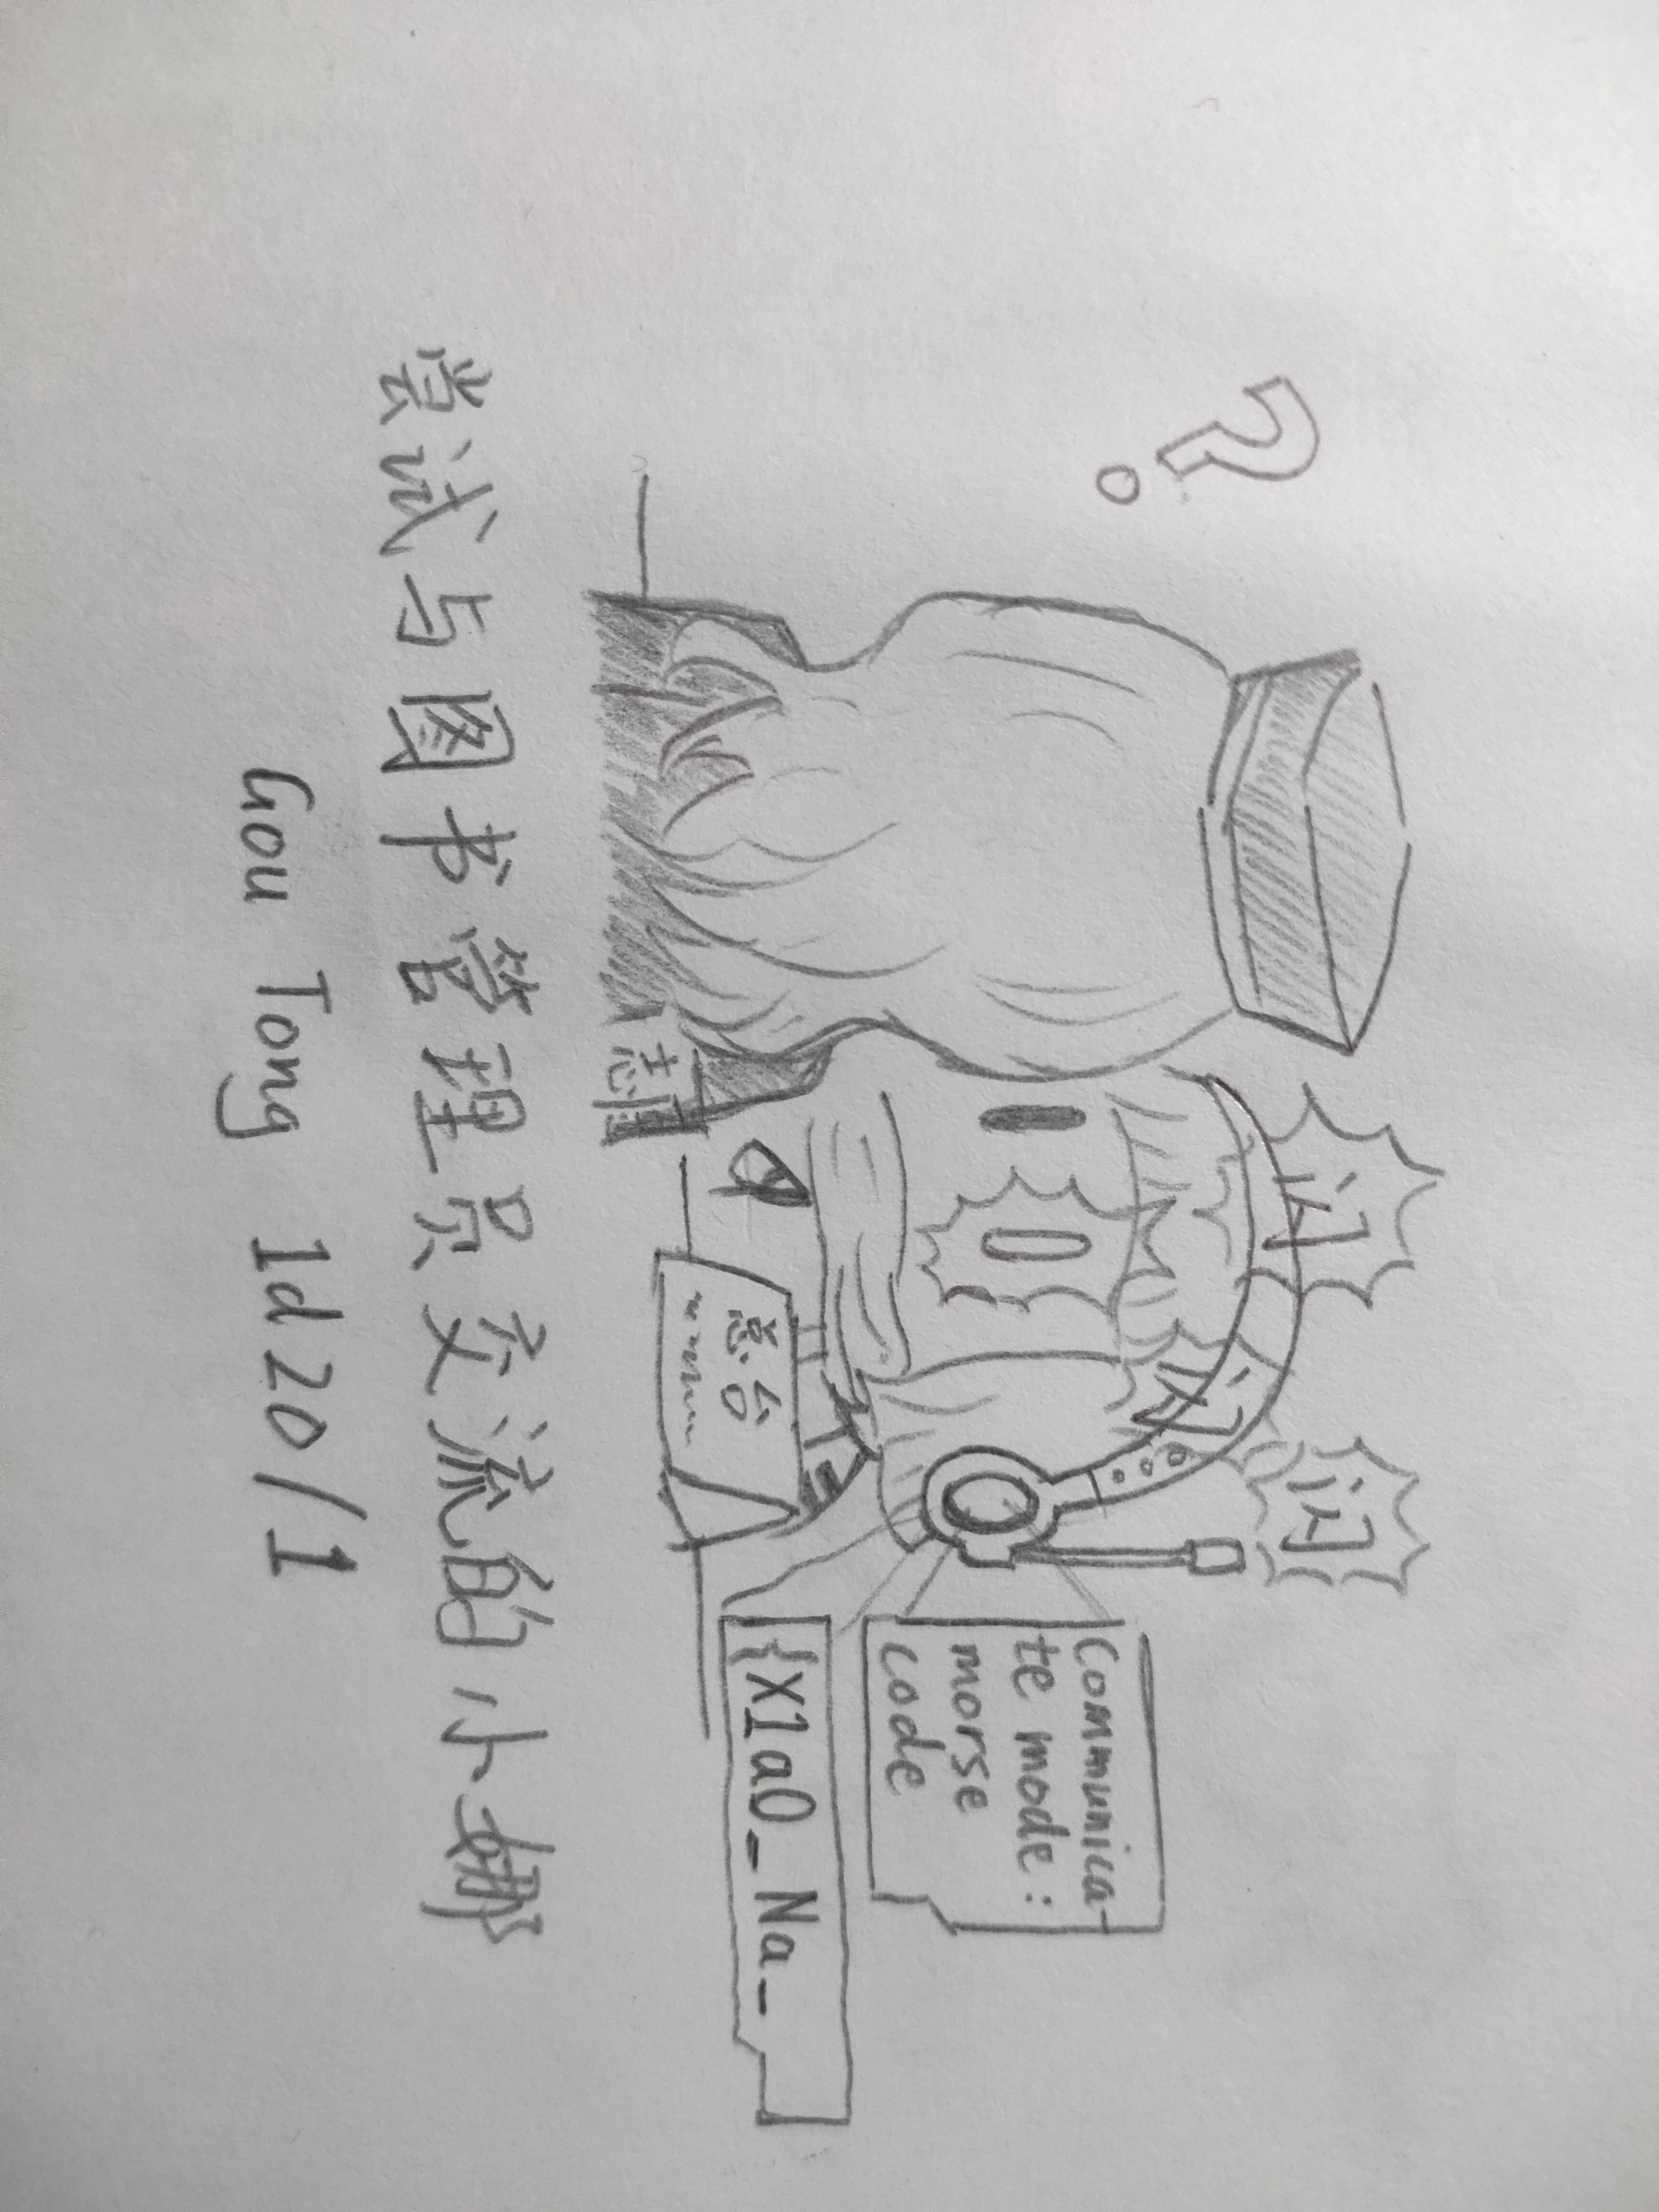 闪
闪
闪
Communica-
te mode:
morse
code
{X1a0_Na_
总台
志
尝试与图书管理员交流的小娜
Gou Tong 1d20/1